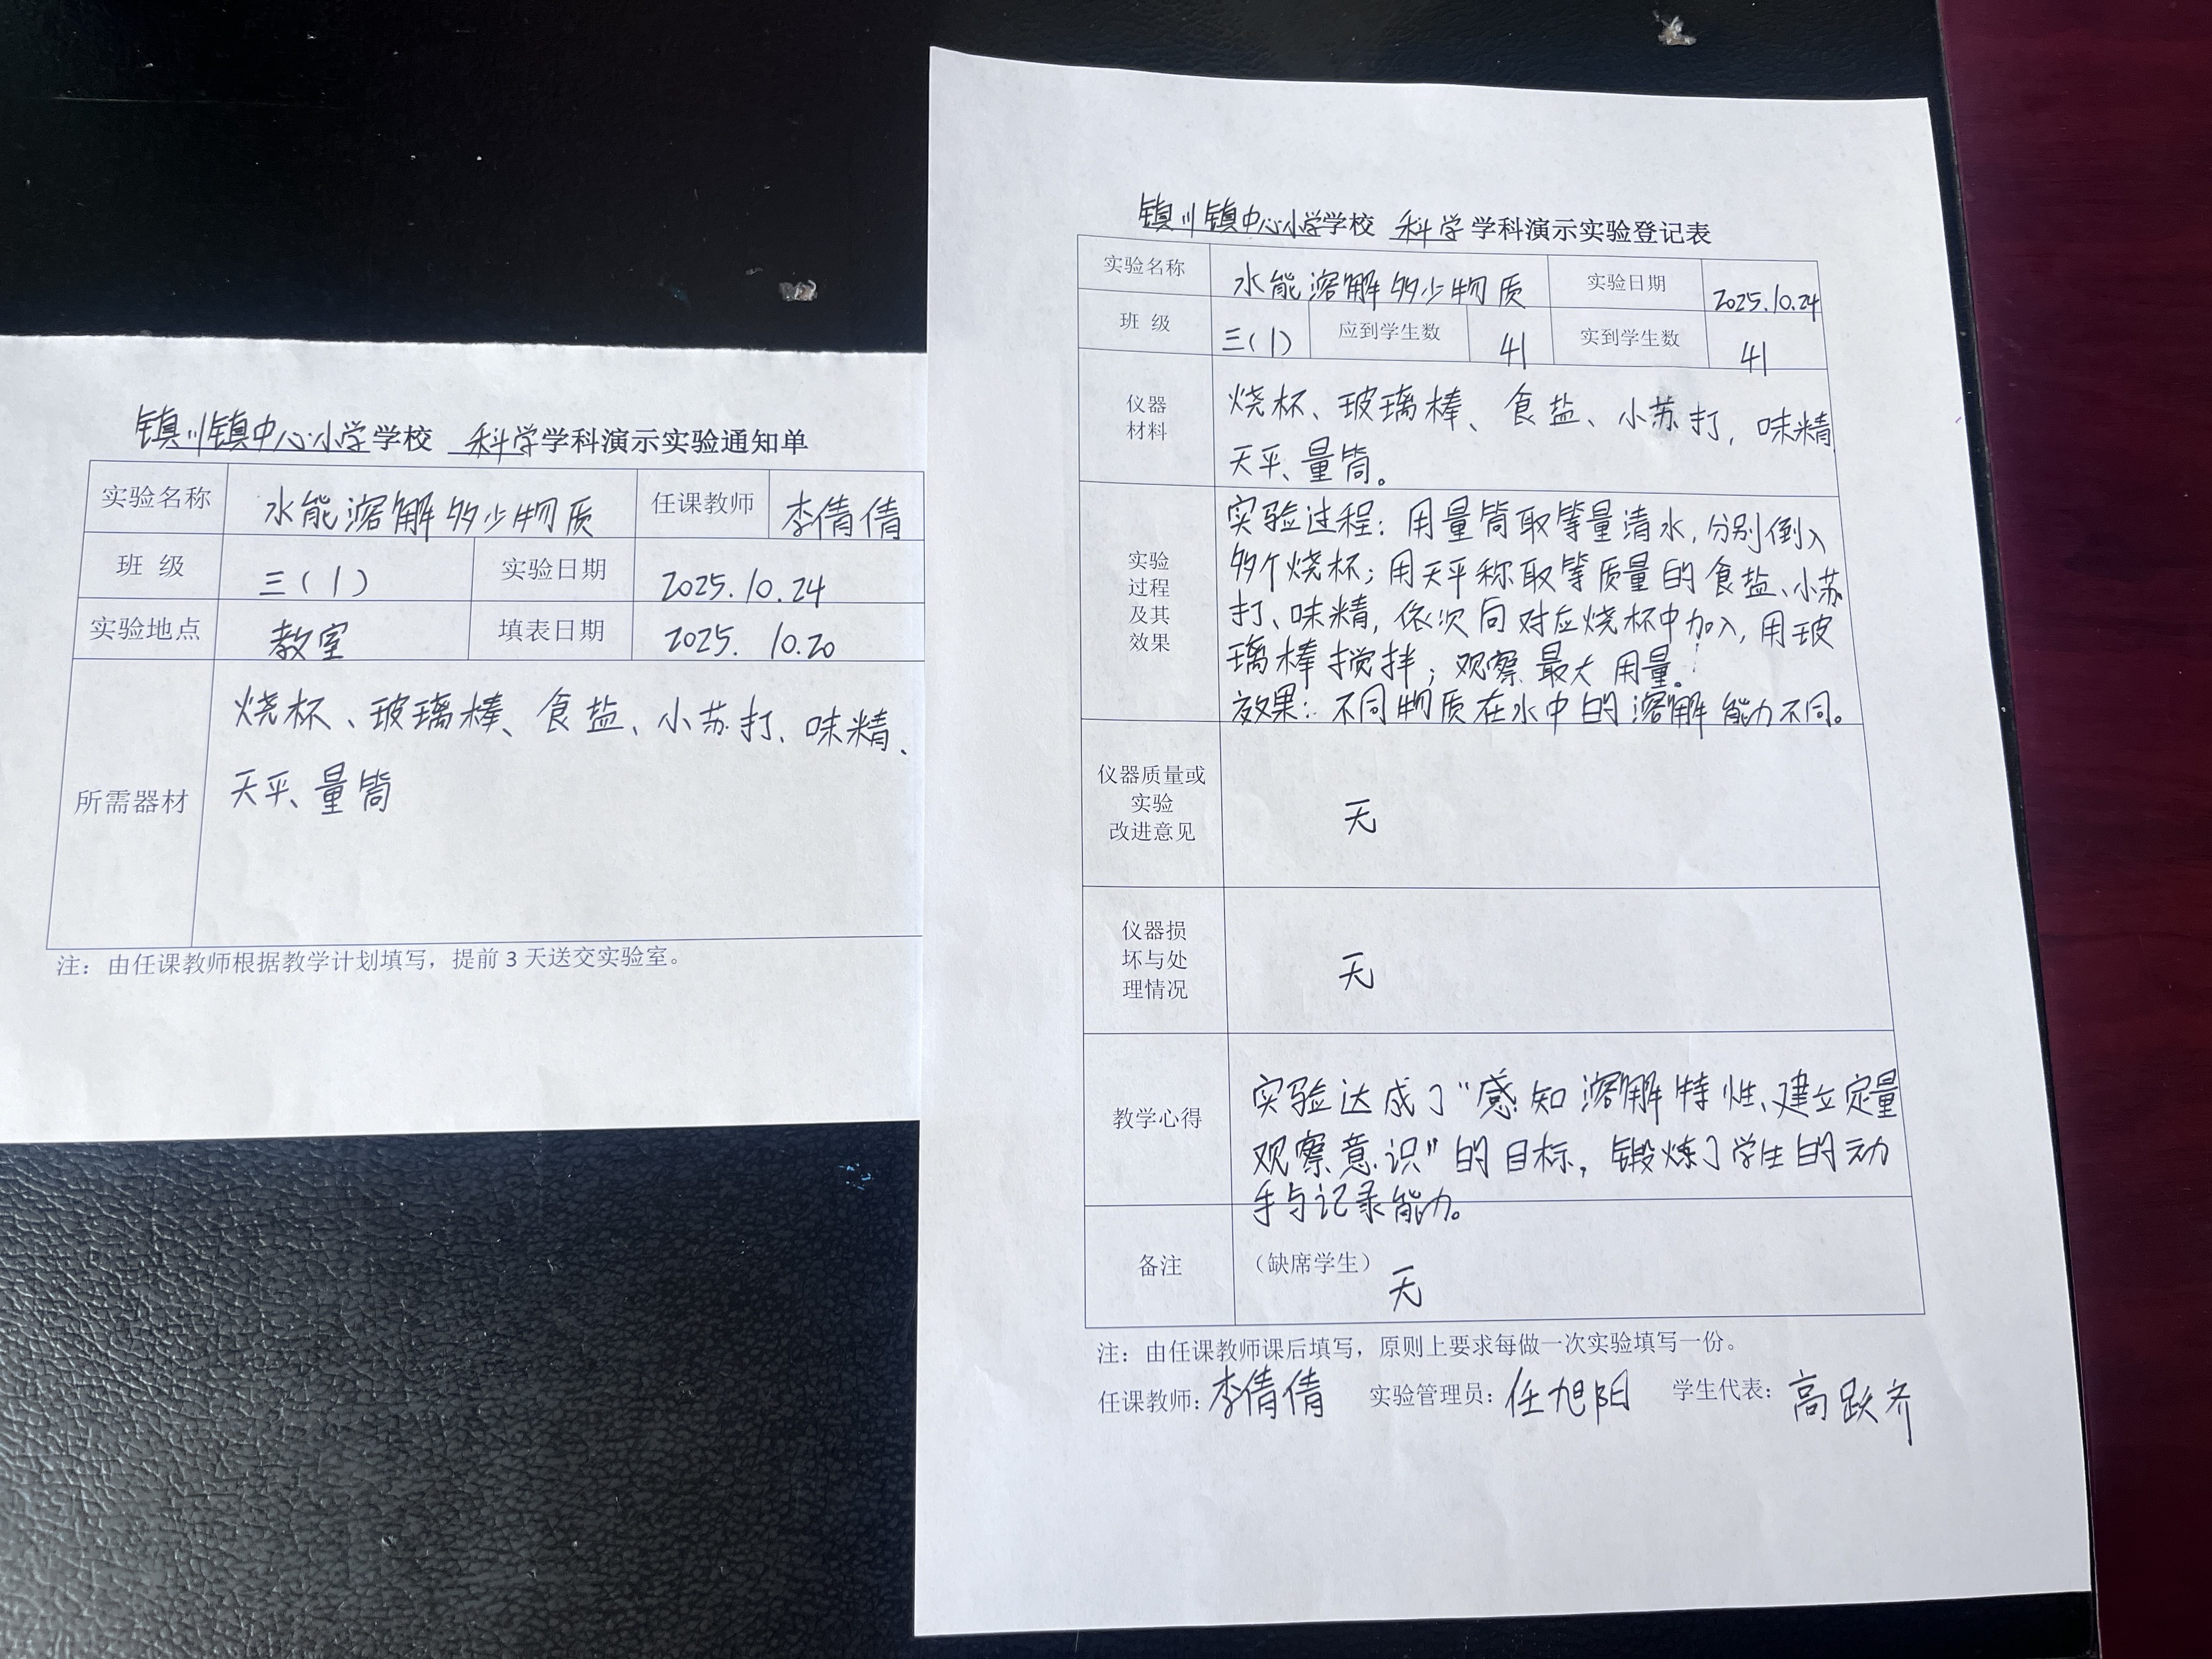 镇川镇中心小学学校 科学学科演示实验通知单
实验名称 水能溶解多少物质 任课教师 李倩倩
班 级 三(1) 实验日期 2025.10.24
实验地点 教室 填表日期 2025. 10.20
所需器材 烧杯、玻璃棒、食盐、小苏打、味精、
天平、量筒
注：由任课教师根据教学计划填写，提前 3 天送交实验室。
镇川镇中心小学学校 科学学科演示实验登记表
实验名称 水能溶解多少物质 实验日期 2025.10.24
班 级 三(1) 应到学生数 41 实到学生数 41
仪器
材料
烧杯、玻璃棒、食盐、小苏打, 味精
天平、量筒。
实验
过程
及其
效果
实验过程: 用量筒取等量清水, 分别倒入
多个烧杯; 用天平称取等质量的食盐、小苏
打、味精, 依次向对应烧杯中加入, 用玻
璃棒搅拌; 观察最大用量。
效果: 不同物质在水中的溶解能力不同。
仪器质量或
实验
改进意见
无
仪器损
坏与处
理情况
无
教学心得
实验达成了“感知溶解特性、建立定量
观察意识”的目标, 锻炼了学生的动
手与记录能力。
备注 （缺席学生） 无
注：由任课教师课后填写，原则上要求每做一次实验填写一份。
任课教师: 李倩倩 实验管理员: 任旭阳 学生代表: 高跃齐